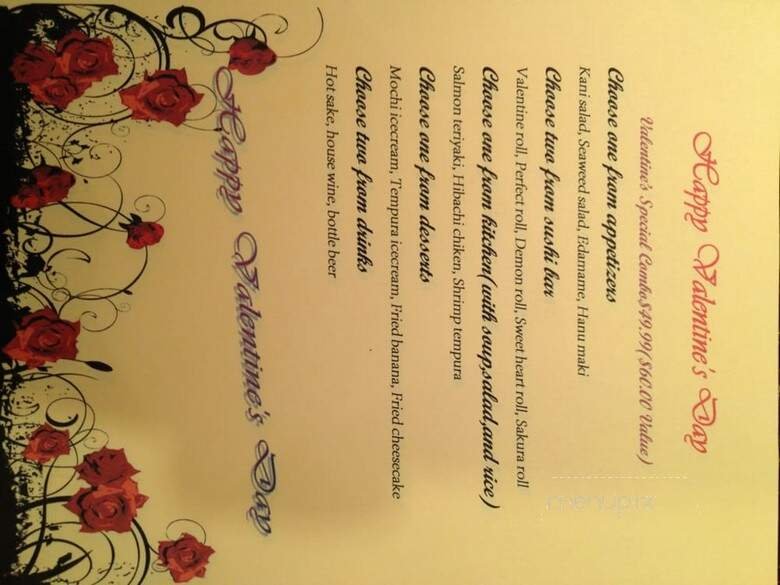 Happy Valentine's Day
Valentine's Special Combo$49.99($60.00 Value)
Choose one from appetizers
Kani salad, Seaweed salad, Edamame, Hanu maki
Choose two from sushi bar
Valentine roll, Perfect roll, Demon roll, Sweet heart roll, Sakura roll
Choose one from kitchen(with soup,salad,and rice)
Salmon teriyaki, Hibachi chiken, Shrimp tempura
Choose one from desserts
Mochi icecream, Tempura icecream, Fried banana, Fried cheesecake
Choose two from drinks
Hot sake, house wine, bottle beer
Happy Valentine's Day
menupix